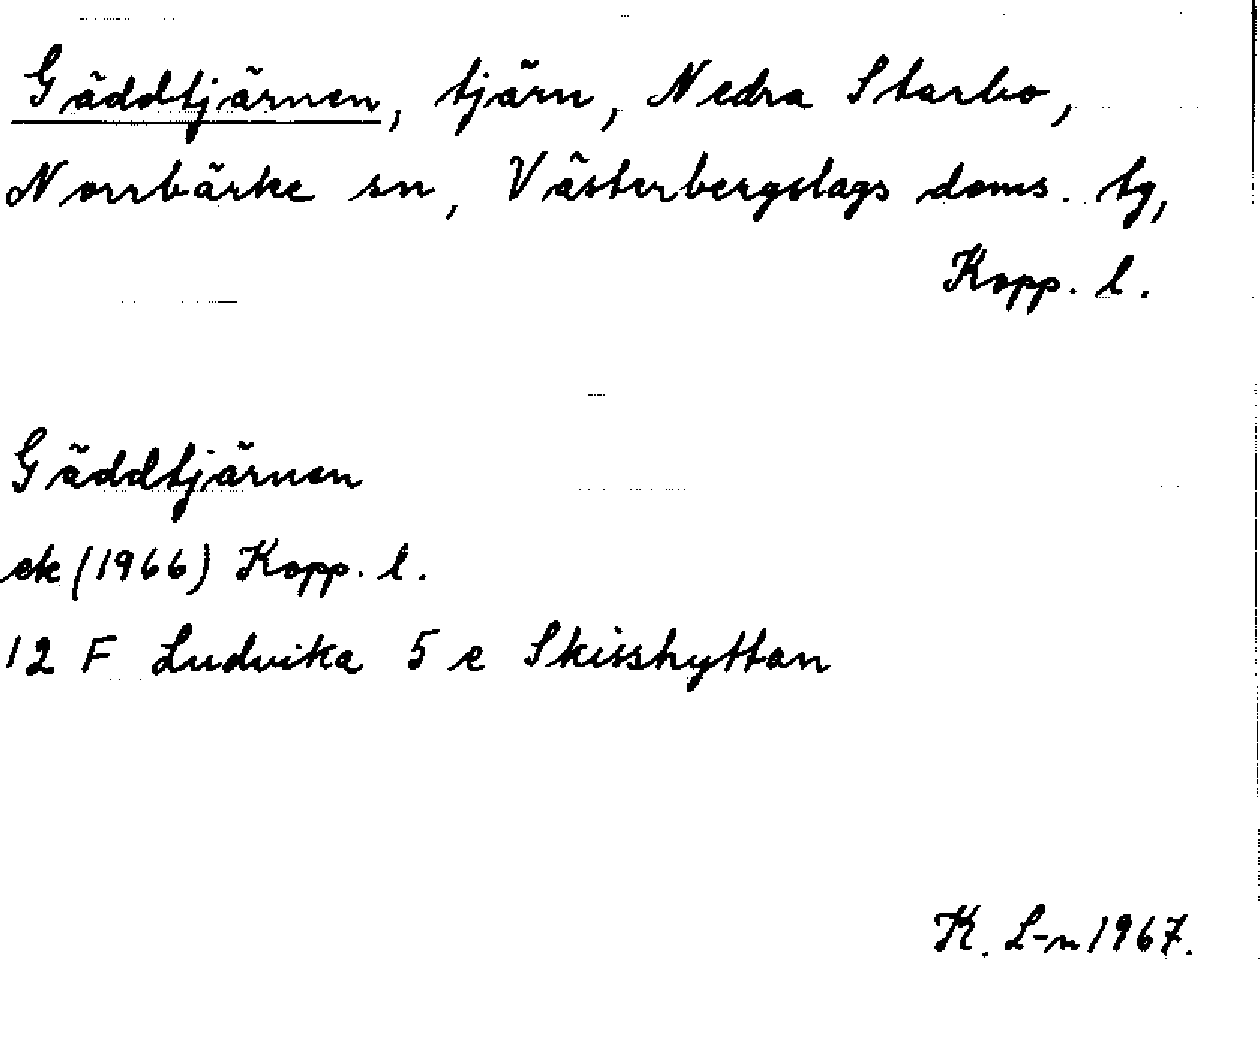 Gäddtjärnen, tjärn, Nedra Starbo,
Norrbärke sn, Västerbergslags doms. tg,
Kopp. l.
Gäddtjärnen
ek (1966) Kopp. l.
12 F Ludvika 5 e Skisshyttan
K. L-n 1967.